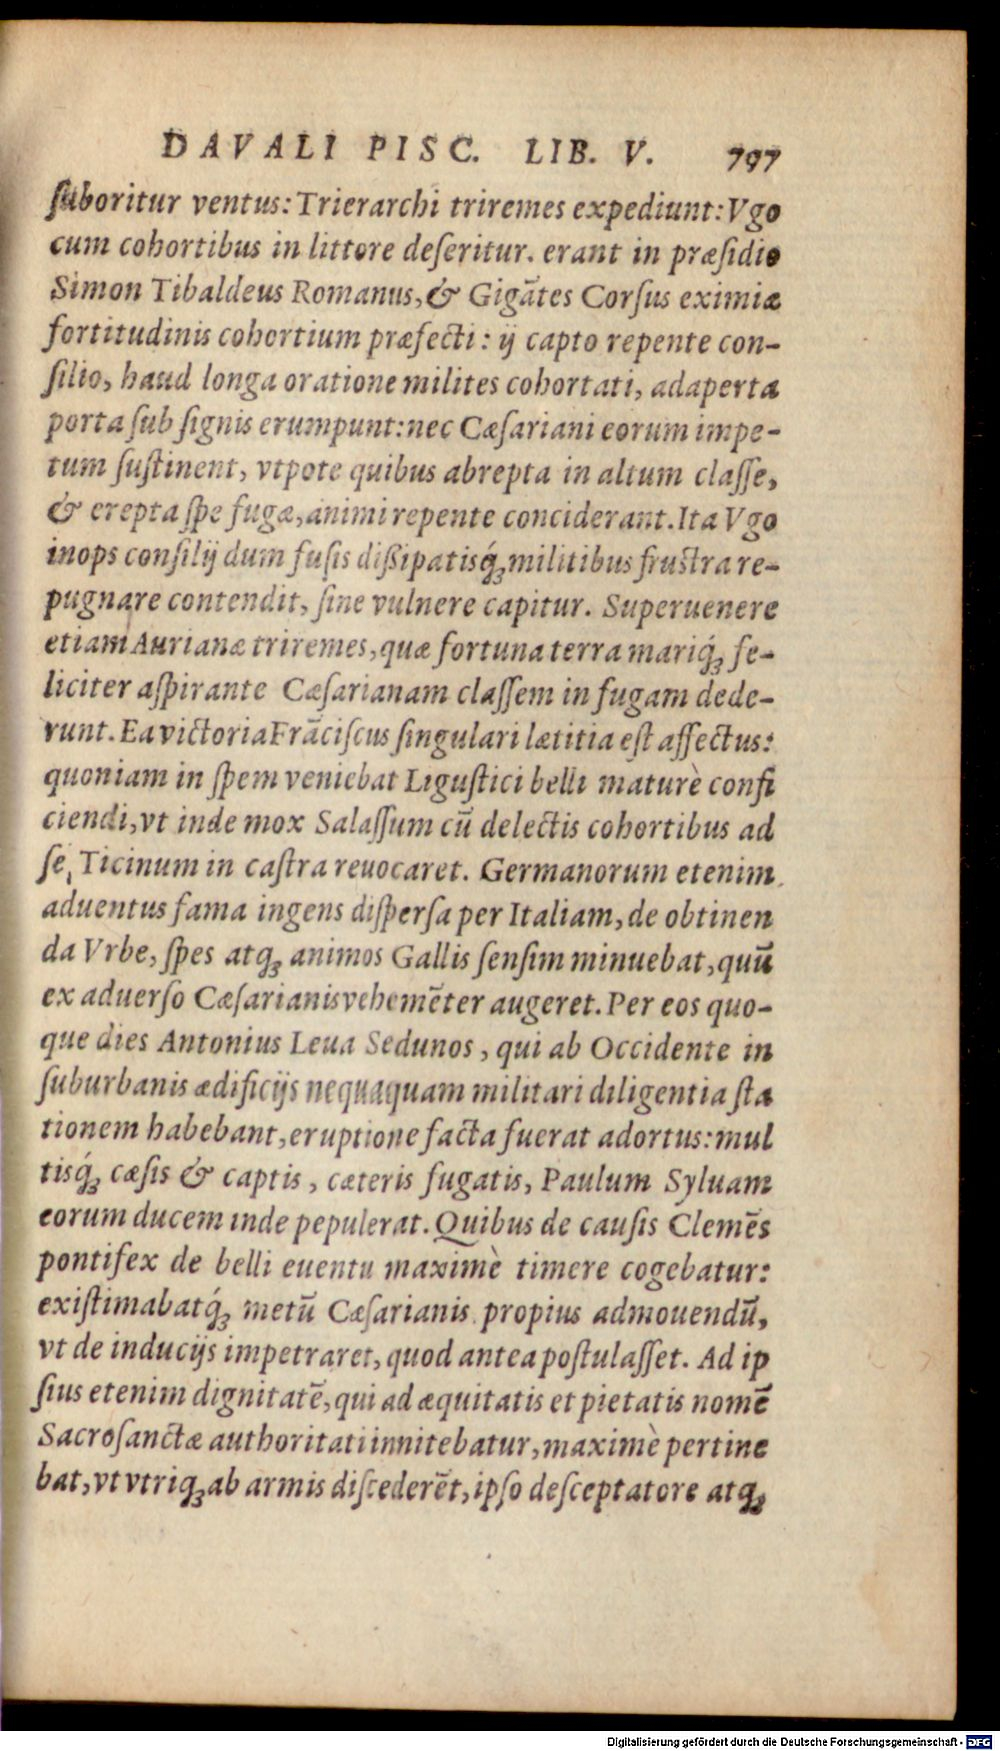 DAVALI PISC. LIB. V. 797
ſuboritur ventus: Trierarchi triremes expediunt: Vgo
cum cohortibus in littore deſeritur. erant in præſidio
Simon Tibaldeus Romanus, & Gigātes Corſus eximiæ
fortitudinis cohortium præfecti: ij capto repente con-
ſilio, haud longa oratione milites cohortati, adaperta
porta ſub ſignis erumpunt: nec Cæſariani eorum impe-
tum ſuſtinent, vtpote quibus abrepta in altum claſſe,
& erepta ſpe fugæ, animi repente conciderant. Ita Vgo
inops conſilij dum fuſis dißipatisq́ꝫ militibus fruſtra re-
pugnare contendit, ſine vulnere capitur. Superuenere
etiam Aurianæ triremes, quæ fortuna terra mariq́ꝫ fe-
liciter aſpirante Cæſarianam claſſem in fugam dede-
runt. Ea victoria Frāciſcus ſingulari lætitia eſt affectus:
quoniam in ſpem veniebat Liguſtici belli maturè confi
ciendi, vt inde mox Salaſſum cū delectis cohortibus ad
ſe, Ticinum in caſtra reuocaret. Germanorum etenim
aduentus fama ingens diſperſa per Italiam, de obtinen
da Vrbe, ſpes atqꝫ animos Gallis ſenſim minuebat, quū
ex aduerſo Cæſarianis vehemēter augeret. Per eos quo-
que dies Antonius Leua Sedunos, qui ab Occidente in
ſuburbanis ædificijs nequaquam militari diligentia ſta
tionem habebant, eruptione facta fuerat adortus: mul
tisq́ꝫ cæſis & captis, cæteris fugatis, Paulum Syluam
eorum ducem inde pepulerat. Quibus de cauſis Clemēs
pontifex de belli euentu maximè timere cogebatur:
exiſtimabatq́ꝫ metū Cæſarianis propius admouendū,
vt de inducijs impetraret, quod antea poſtulaſſet. Ad ip
ſius etenim dignitatē, qui ad æquitatis et pietatis nomē
Sacroſanctæ authoritati innitebatur, maximè pertine
bat, vt vtriqꝫ ab armis diſcederēt, ipſo deſceptatore atqꝫ
Digitalisierung gefördert durch die Deutsche Forschungsgemeinschaft - DFG